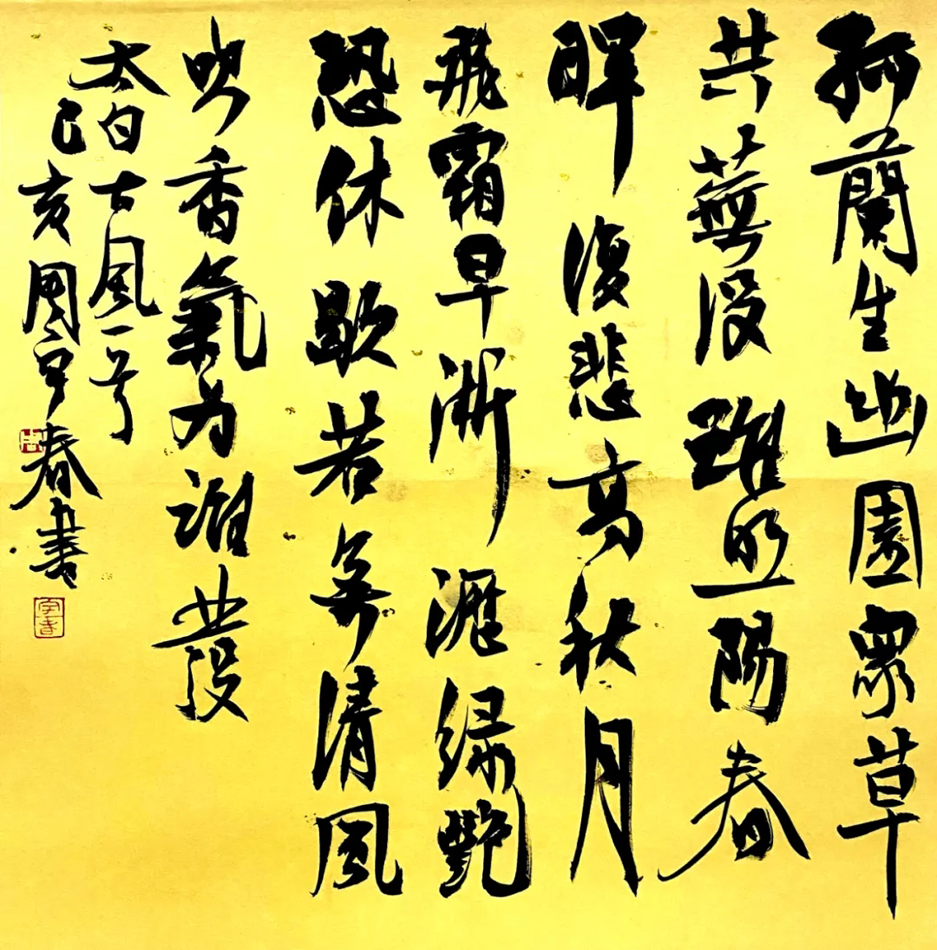 孤蘭生幽園眾草
共蕪沒雖照陽春
暉復悲高秋月
飛霜早淅瀝綠艷
恐休歇若無清風
吹香氣為誰發
太白古風一首
己亥周宇春書
宇春